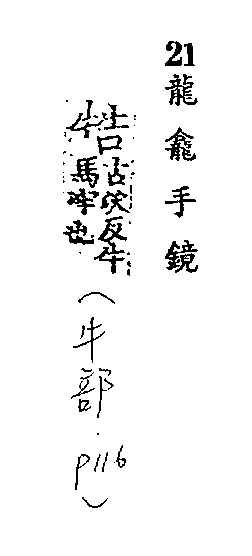 21龍龕手鏡
牿古沃反牛
馬牢也
(牛部.P116)